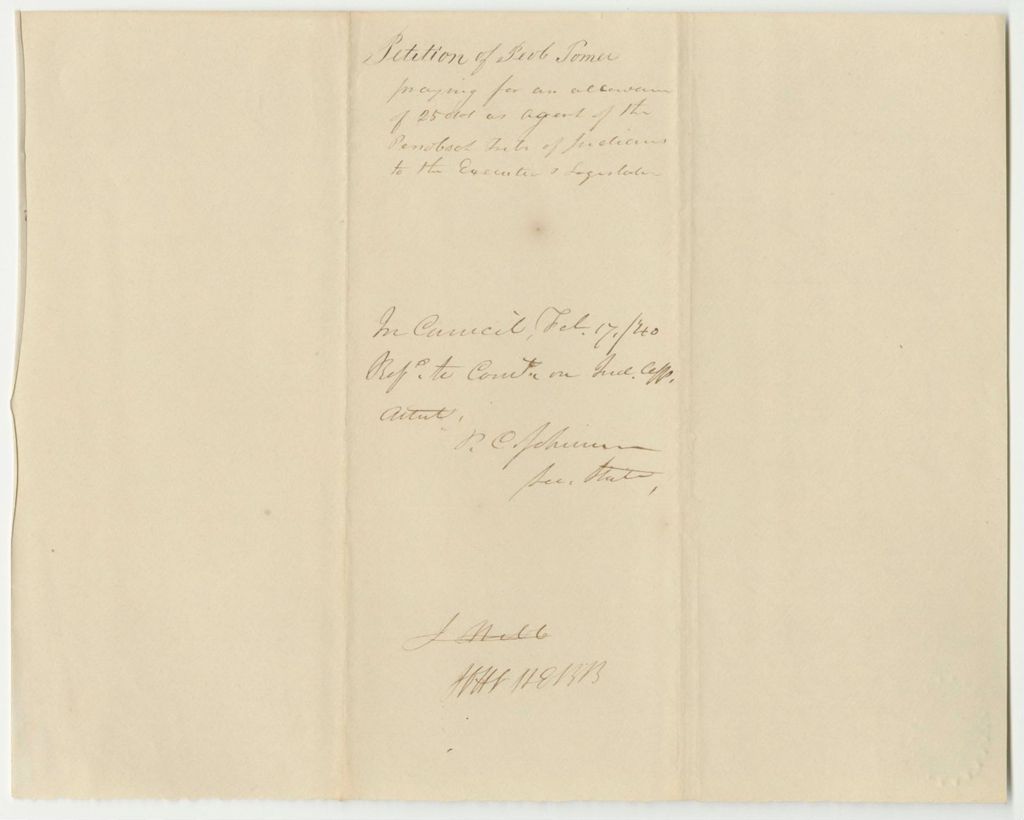 Petition of Peol Tomer
praying for an allowance
of 25 dol as agent of the
Penobscot Tribe of Indians
to the Executive & Legislature
In Council, Feb. 17, /40
Refd. to Comtee on Ind. Aff.
Attest,
P. C. Johnson
Sec. State,